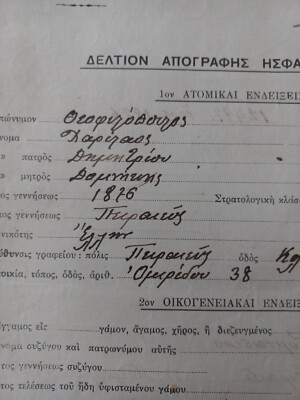 ΔΕΛΤΙΟΝ ΑΠΟΓΡΑΦΗΣ ΗΣΦΑ
1ον ΑΤΟΜΙΚΑΙ ΕΝΔΕΙΞΕΙ
πώνυμον Θεοφιλόπουλος
νομα Χαρίλαος
» πατρὸς Δημητρίου
» μητρὸς
ος γεννήσεως 1876 Στρατολογικὴ κλάσ
ος γεννήσεως Πειραιεύς
ενικότης Ἕλλην
εύθυνσις γραφείου: πόλις Πειραιεύς ὁδὸς Κολ
οικία, τόπος, ὁδός, ἀριθ. 38
2ον ΟΙΚΟΓΕΝΕΙΑΚΑΙ ΕΝΔΕΙ
γγαμος εἰς γάμον, ἄγαμος, χῆρος, ἢ διεζευγμένος
νομα συζύγου καὶ πατρωνύμου αὐτῆς
τος γεννήσεως συζύγου
τος τελέσεως τοῦ ἤδη ὑφισταμένου γάμου.